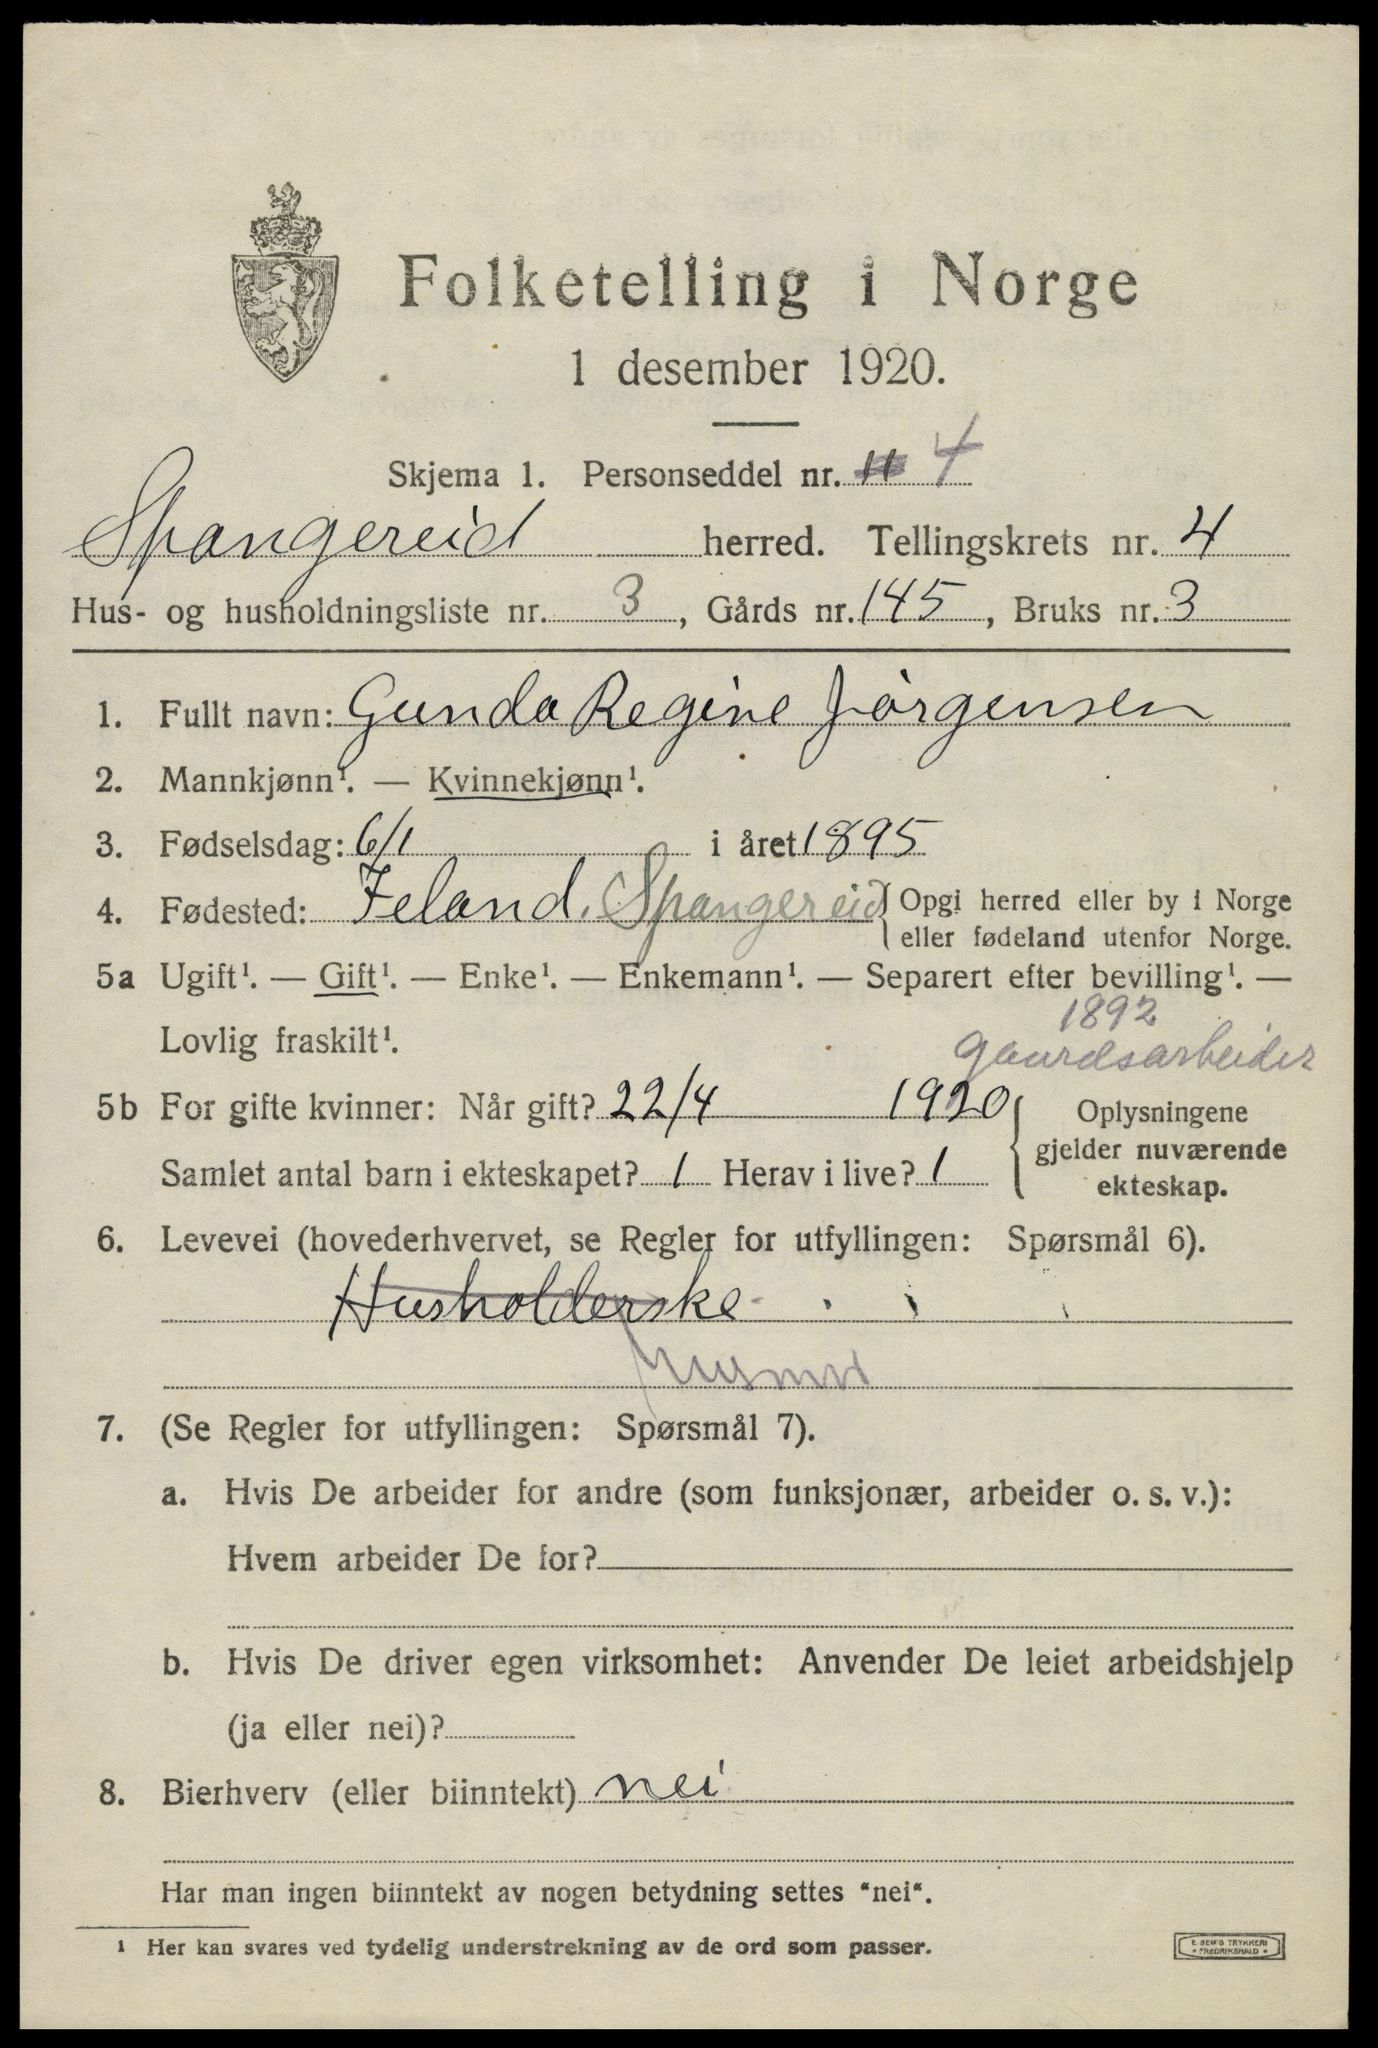 Folketelling i Norge
1 desember 1920.
Skjema 1. Personseddel nr. 11 4
Spangereid herred. Tellingskrets nr. 4
Hus- og husholdningsliste nr. 3, Gårds nr. 145, Bruks nr. 3
1. Fullt navn: Gunda Regine Jörgensen
2. Mannkjønn¹. — Kvinnekjønn¹.
3. Fødselsdag: 6/1 i året 1895
4. Fødested: Jeland. Spangereid { Opgi herred eller by i Norge
eller fødeland utenfor Norge.
5a Ugift¹. — Gift¹. — Enke¹. — Enkemann¹. — Separert efter bevilling¹. —
Lovlig fraskilt¹.
1892
gaardsarbeider
5b For gifte kvinner: Når gift? 22/4 1920
Samlet antal barn i ekteskapet? 1 Herav i live? 1
Oplysningene
gjelder nuværende
ekteskap.
6. Levevei (hovederhvervet, se Regler for utfyllingen: Spørsmål 6).
Husholderske
Husmor
7. (Se Regler for utfyllingen: Spørsmål 7).
a. Hvis De arbeider for andre (som funksjonær, arbeider o. s. v.):
Hvem arbeider De for?
b. Hvis De driver egen virksomhet: Anvender De leiet arbeidshjelp
(ja eller nei)?
8. Bierhverv (eller biinntekt) nei
Har man ingen biinntekt av nogen betydning settes “nei“.
¹ Her kan svares ved tydelig understrekning av de ord som passer.
E. SEM'S TRYKKERI
• FREDRIKSHALD •